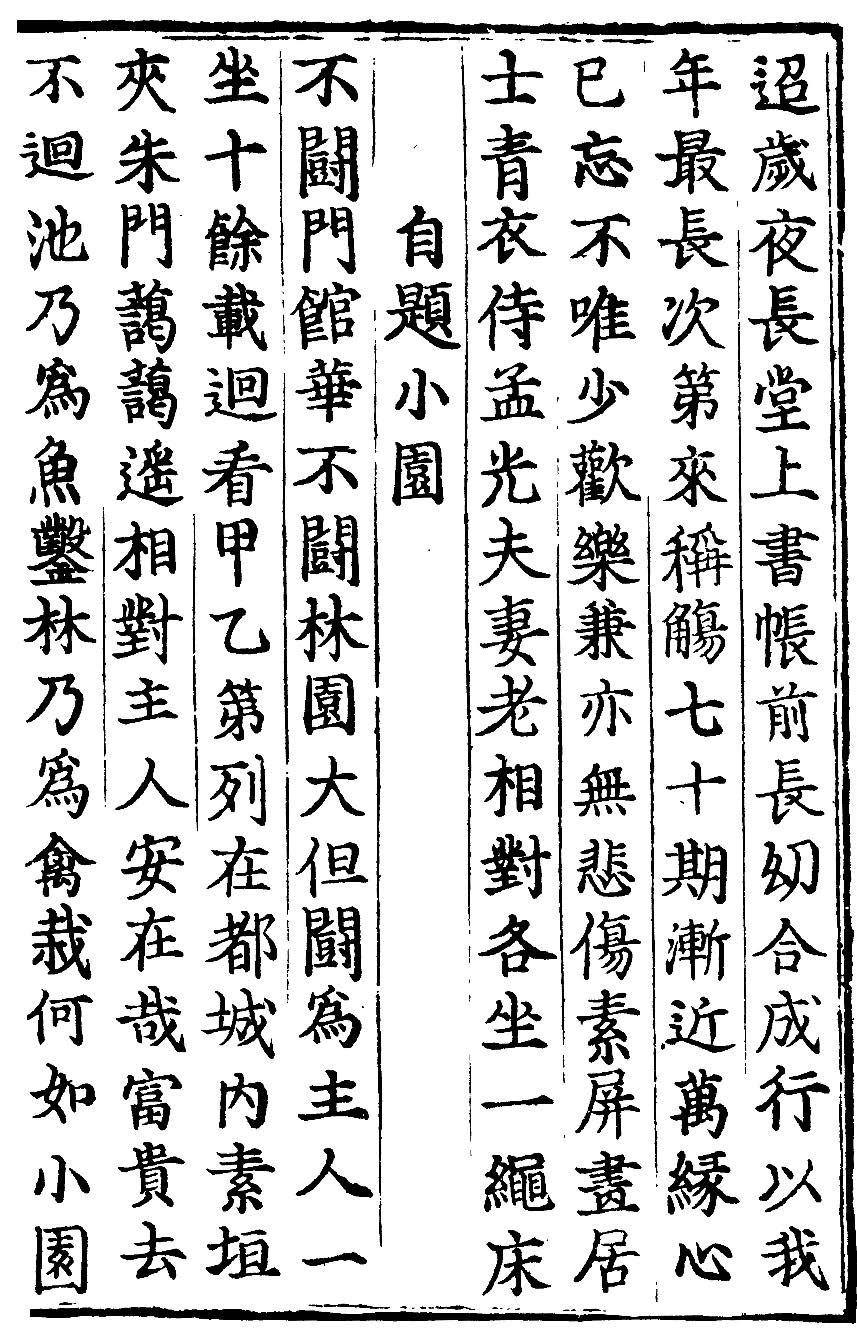 迢歲夜長堂上書帳前長幼合成行以我
年最長次第來稱觴七十期漸近萬縁心
已忘不唯少歡樂兼亦無悲傷素屏晝居
士青衣侍孟光夫妻老相對各坐一繩床
自題小園
不鬪門館華不鬪林園大但鬪爲主人一
坐十餘載迴看甲乙第列在都城內素垣
夾朱門藹藹遥相對主人安在哉富貴去
不迴池乃爲魚鑿林乃爲禽栽何如小園